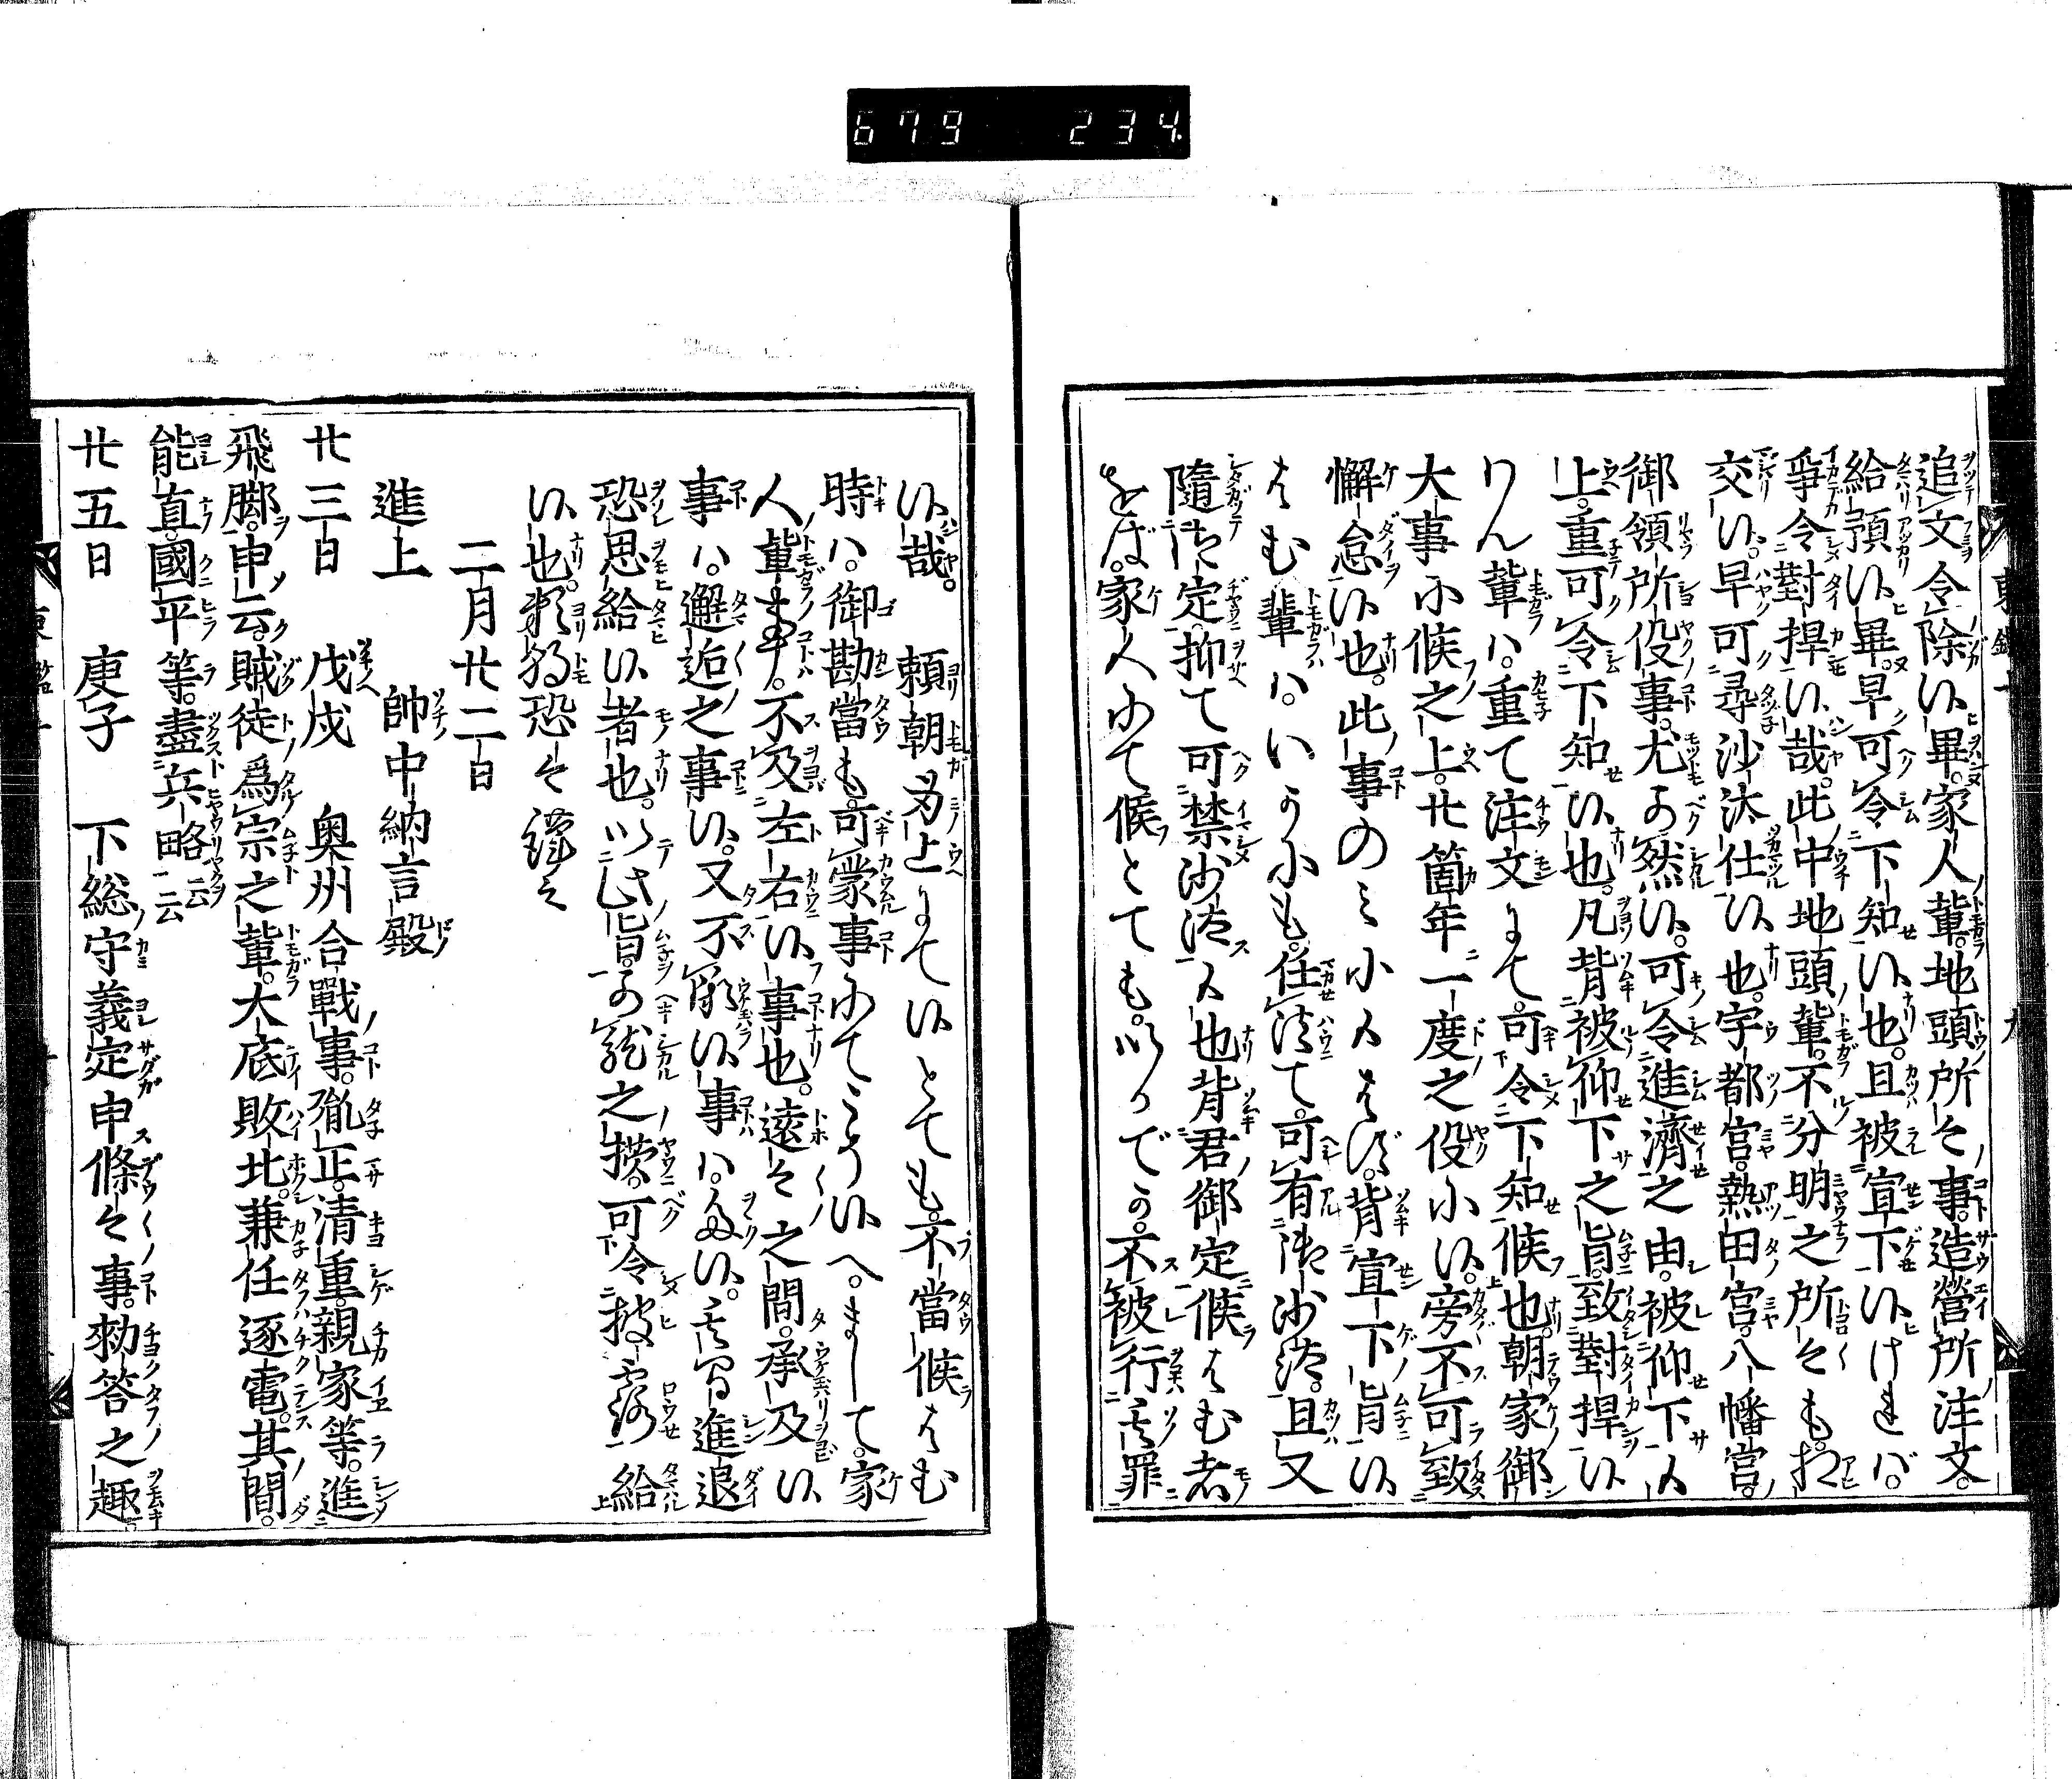 679 234
追文令除候畢。家人輩。地頭所々事。造營所注文。
給預候畢。早可令下知候也。且被宣下候けれバ。
爭令對捍候哉。此中地頭輩。不分明之所々も。相
交候。早可尋沙汰仕候也。宇都宮。熱田宮。八幡宮。
御領所役事。尤可然候。可令進濟之由。被仰下候
上。重可令下知候也。凡背被仰下之旨。致對捍候
りん輩ハ。重て注文にて。可令下知候也。朝家御
大事に候之上。廿箇年一度之役に候。旁不可致
懈怠候也。此事のミに候はず。背宣下旨候
はむ輩ハ。いかにも。任法て。可有御沙汰。且又
隨御定。抑て可禁沙汰候也。背君御定候はむ者
をば。家人にて候とても。いかでか。不被行其罪
候哉。頼朝身上にて候とても。不當候はむ
時ハ。御勘當も。可蒙事にてこそ候へ。まして。家
人輩事。不及左右候事也。遠々之間。承及候
事ハ。邂逅之事候。又不承候事ハ。多候。其間進退
恐思給候者也。以此旨。可然之樣。可令披露給
候也。頼朝恐々謹言
二月廿二日
進上 帥中納言殿
廿三日 戊戌 奥州合戰事。胤正。清重。親家等。進
飛脚。申云。賊徒爲宗之輩。大底敗北。兼任逐電。其間。
能直。國平等。盡兵略云云
廿五日 庚子 下総守義定申條々事。勅答之趣。